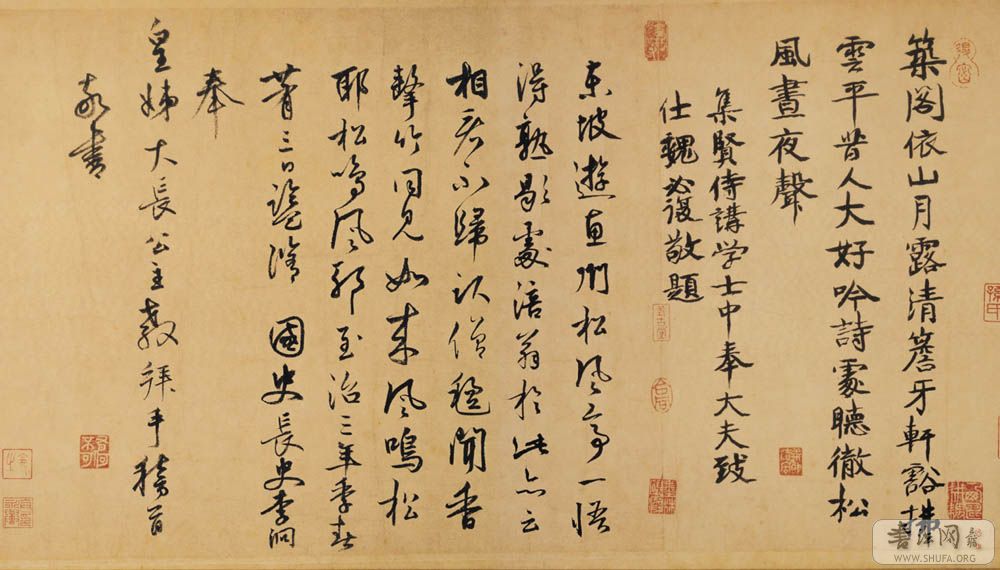 築閣依山月露清簷牙軒豁
雲平昔人大好吟詩處聽徹松
風晝夜聲
集賢侍講学士中奉大夫致
仕魏必復敬題
東坡遊惠州松風亭一悟
得熟歇處涪翁於此亦云
相君不歸認僧聞香
擊竹同見如来風鳴松
耶松鳴風邪至治三年季春
三日盥滌國史長史李泂
奉
皇姊大長公主教拜手稽首
敬書
書法网
WWW.SHUFA.ORG